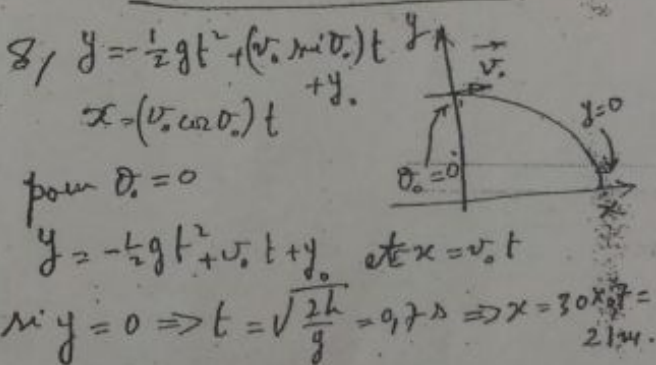 8, y = -½gt² + (v₀ sin θ₀)t
+ y₀
x = (v₀ cos θ₀)t
pour θ₀ = 0
y = -½gt² + v₀t + y₀ et x = v₀t
si y = 0 => t = √(2h/g) = 0,7s => x = 30x0,7 =
21m.
y
v₀
y=0
θ₀ = 0
x